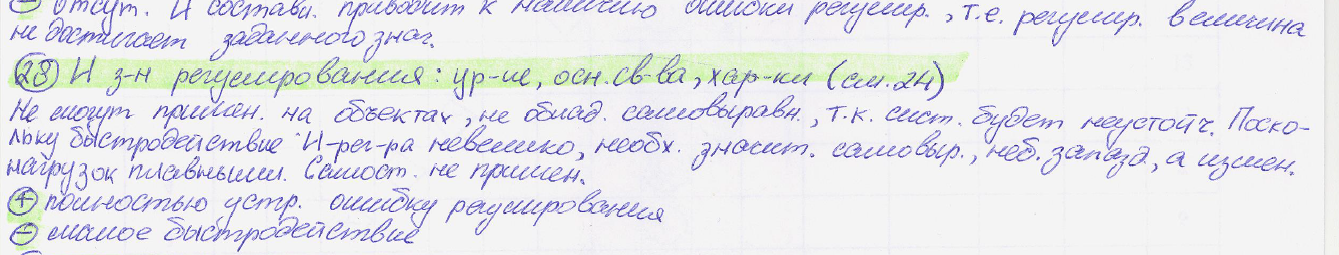 ⊖ отсут. И составл. приводит к наличию ошибки регулир., т.е. регулир. величина
не достигает заданного знач.
28 И з-н регулирования: ур-ие, осн. св-ва, хар-ки (см. 24)
Не могут примен. на объектах, не облад. самовыравн., т.к. сист. будет неустойч. Поско-
льку быстродействие И-рег-ра невелико, необх. значит. самовыр., неб. запазд., а измен.
нагрузок плавными. Самост. не примен.
⊕ полностью устр. ошибку регулирования
⊖ малое быстродействие